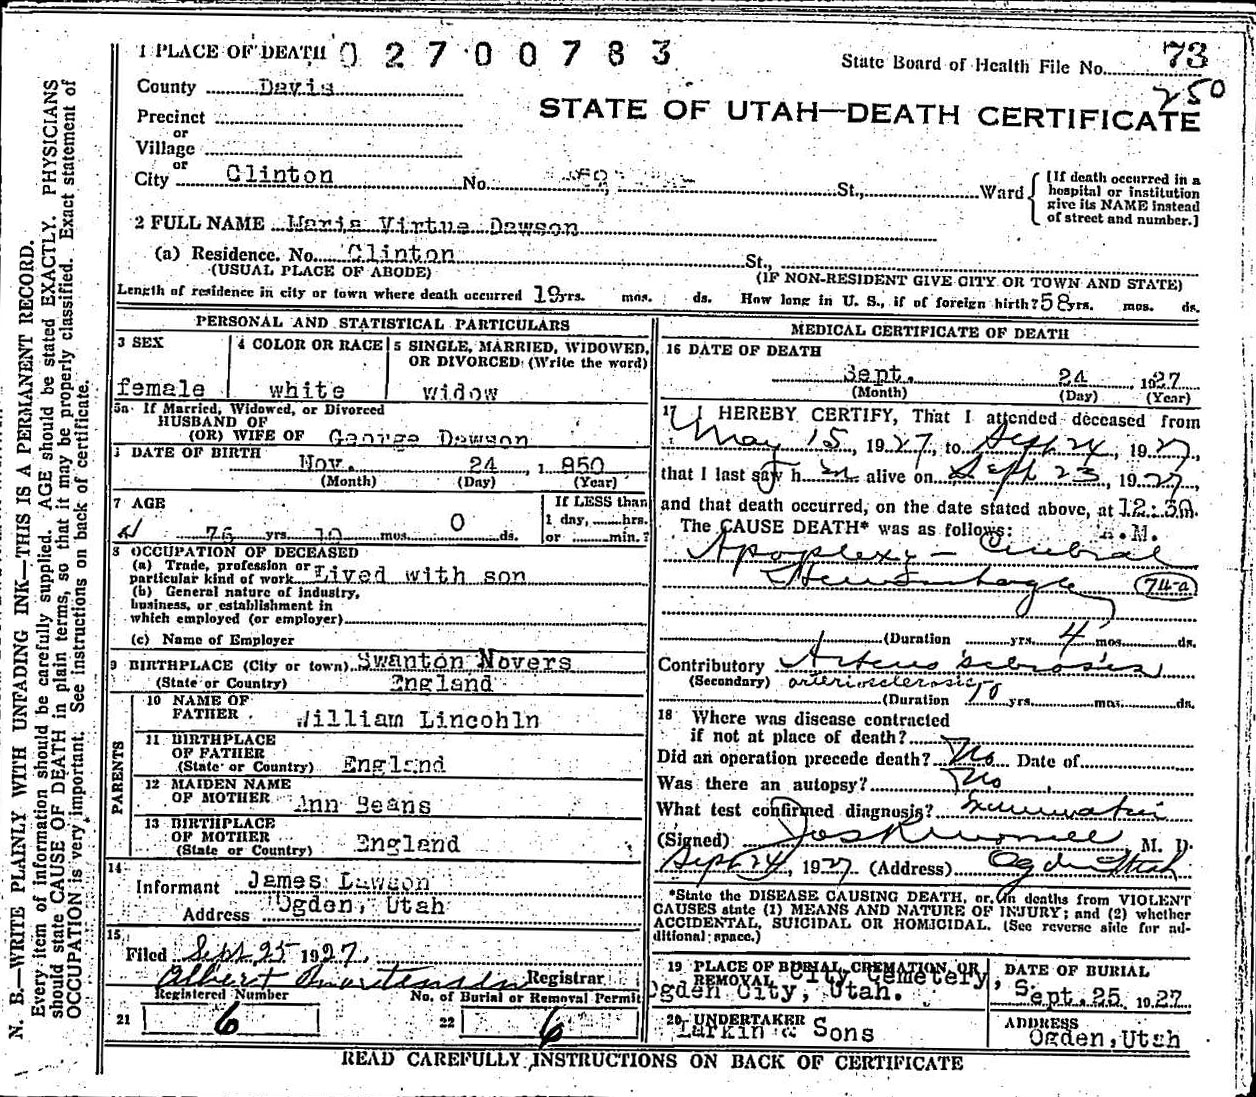 1 PLACE OF DEATH 02700783
State Board of Health File No. 73
250
County Davis
STATE OF UTAH—DEATH CERTIFICATE
Precinct
or
Village
or
City Clinton No. St., Ward
[If death occurred in a hospital or institution give its NAME instead of street and number.]
2 FULL NAME Maria Virtue Dawson
(a) Residence. No. Clinton St.,
(USUAL PLACE OF ABODE) (IF NON-RESIDENT GIVE CITY OR TOWN AND STATE)
Length of residence in city or town where death occurred 19 yrs. mos. ds. How long in U. S., if of foreign birth? 58 yrs. mos. ds.
PERSONAL AND STATISTICAL PARTICULARS
3 SEX
female
4 COLOR OR RACE
white
5 SINGLE, MARRIED, WIDOWED, OR DIVORCED (Write the word)
widow
5a If Married, Widowed, or Divorced
HUSBAND OF
(OR) WIFE OF George Dawson
DATE OF BIRTH
Nov. 24, 1850
(Month) (Day) (Year)
7 AGE
76 yrs. 10 mos. 0 ds.
If LESS than
1 day, hrs.
or min.?
8 OCCUPATION OF DECEASED
(a) Trade, profession or
particular kind of work Lived with son
(b) General nature of industry,
business, or establishment in
which employed (or employer)
(c) Name of Employer
9 BIRTHPLACE (City or town) Swanton Novers
(State or Country) England
PARENTS
10 NAME OF
FATHER William Lincohln
11 BIRTHPLACE
OF FATHER
(State or Country) England
12 MAIDEN NAME
OF MOTHER Ann Beans
13 BIRTHPLACE
OF MOTHER
(State or Country) England
14
Informant James Dawson
Address Ogden, Utah
15
Filed Sept 25 1927
Albert Registrar
Registered Number
21 6
No. of Burial or Removal Permit
22 6
MEDICAL CERTIFICATE OF DEATH
16 DATE OF DEATH
Sept. 24, 1927
(Month) (Day) (Year)
17 I HEREBY CERTIFY, That I attended deceased from
May 15, 1927, to Sept 24, 1927,
that I last saw h alive on Sept 23, 1927,
and that death occurred, on the date stated above, at 12:30
A.M.
The CAUSE DEATH* was as follows:
Apoplexy - Cerebral
Hemorrhage 74-a
(Duration yrs. 4 mos. ds.
Contributory Arterio sclerosis
(Secondary) arteriosclerosis
(Duration 10 yrs. mos. ds.
18 Where was disease contracted
if not at place of death?
Did an operation precede death? No Date of
Was there an autopsy? No
What test confirmed diagnosis?
(Signed) M. D.
Sept 24, 1927 (Address) Ogden Utah
*State the DISEASE CAUSING DEATH, or, in deaths from VIOLENT
CAUSES state (1) MEANS AND NATURE OF INJURY; and (2) whether
ACCIDENTAL, SUICIDAL OR HOMICIDAL. (See reverse side for ad-
ditional space.)
19 PLACE OF BURIAL, CREMATION, OR
REMOVAL City Cemetery,
Ogden City, Utah.
DATE OF BURIAL
Sept. 25 1927
20 UNDERTAKER
Larkin & Sons
ADDRESS
Ogden, Utah
READ CAREFULLY INSTRUCTIONS ON BACK OF CERTIFICATE
N. B.—WRITE PLAINLY WITH UNFADING INK—THIS IS A PERMANENT RECORD.
Every item of information should be carefully supplied. AGE should be stated EXACTLY. PHYSICIANS
should state CAUSE OF DEATH in plain terms, so that it may be properly classified. Exact statement of
OCCUPATION is very important. See instructions on back of certificate.